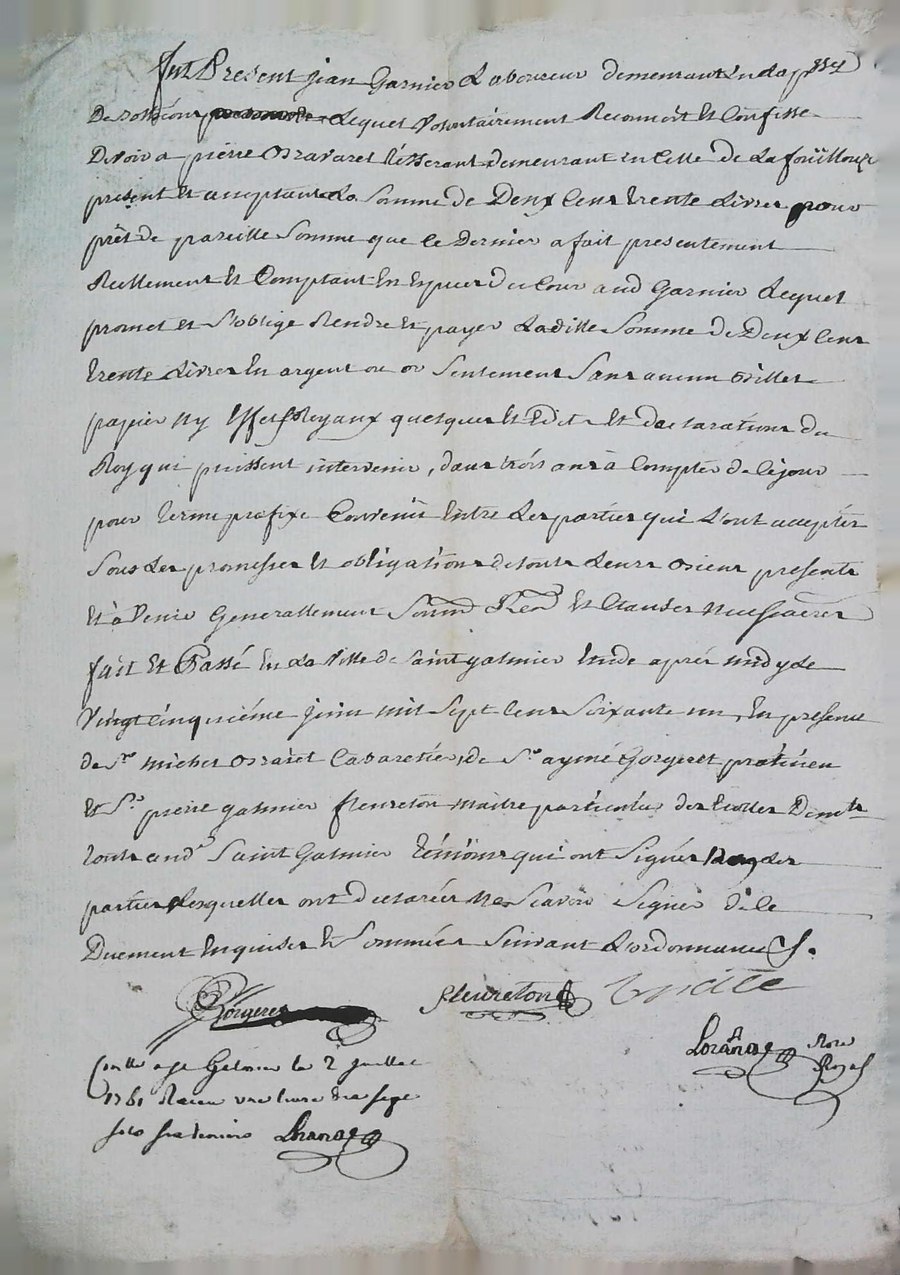 fut Present jean Garnier Laboureur demeurant en la p
De lequel Volontairement Reconnoit et Confesse
Devoir a pierre Tisserant demeurant en celle de Lafoüillouze
present et acceptant La Somme de Deux Cens trente Livres pour
prêt de pareille Somme que ce Dernier a fait presentement
Reellement et Comptant En Especes de Cour aud Garnier Lequel
promet et s'oblige Rendre et payer Laditte Somme de Deux Cens
trente Livres En argent ou or Seulement Sans aucun Billet
papier ny Effets Royaux quelques Edits et declarations du
Roy qui puissent intervenir, dans trois ans à Compter de Cejour
pour terme prefixe Convenu Entre Les parties qui L'ont accepté
Sous Les promesses et obligations de touts Leurs Biens presents
Et à Venir Generallement Soum Ren et Clauses Necessaires
fait et Passé En La Ville de Saint galmier Etude aprés midy le
Vingt Cinquiéme juin mil Sept Cens Soixante un, En presence
de Sr michel Cabaretier, de Sr aymé Gorgeret praticien
et Sr pierre galmier fleureton maitre particulier des Ecolles Demts
touts aud Saint Galmier témoins qui ont Signés les
parties Lesquelles ont declarées ne Scavoir Signer de ce
Duement Enquises et Sommées Suivant L'ordonnance
Gorgeret fleureton
Not Royal
Conllé a St Galmier le 2 Juillet
1761 Receu une livre dix sept
sols six deniers